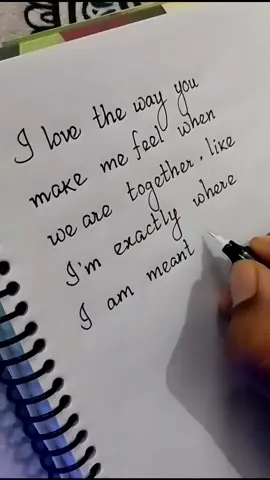 I love the way you
make me feel when
we are together, like
I'm exactly where
I am meant